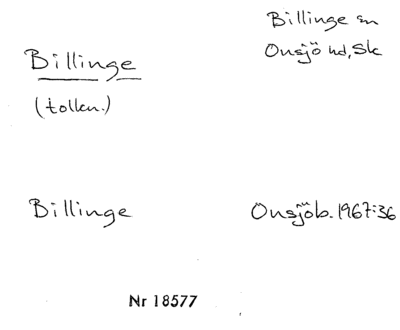 Billinge sn
Onsjö hd, Sk
Billinge
(tolkn.)
Billinge Onsjöb. 1967:36
Nr 18577